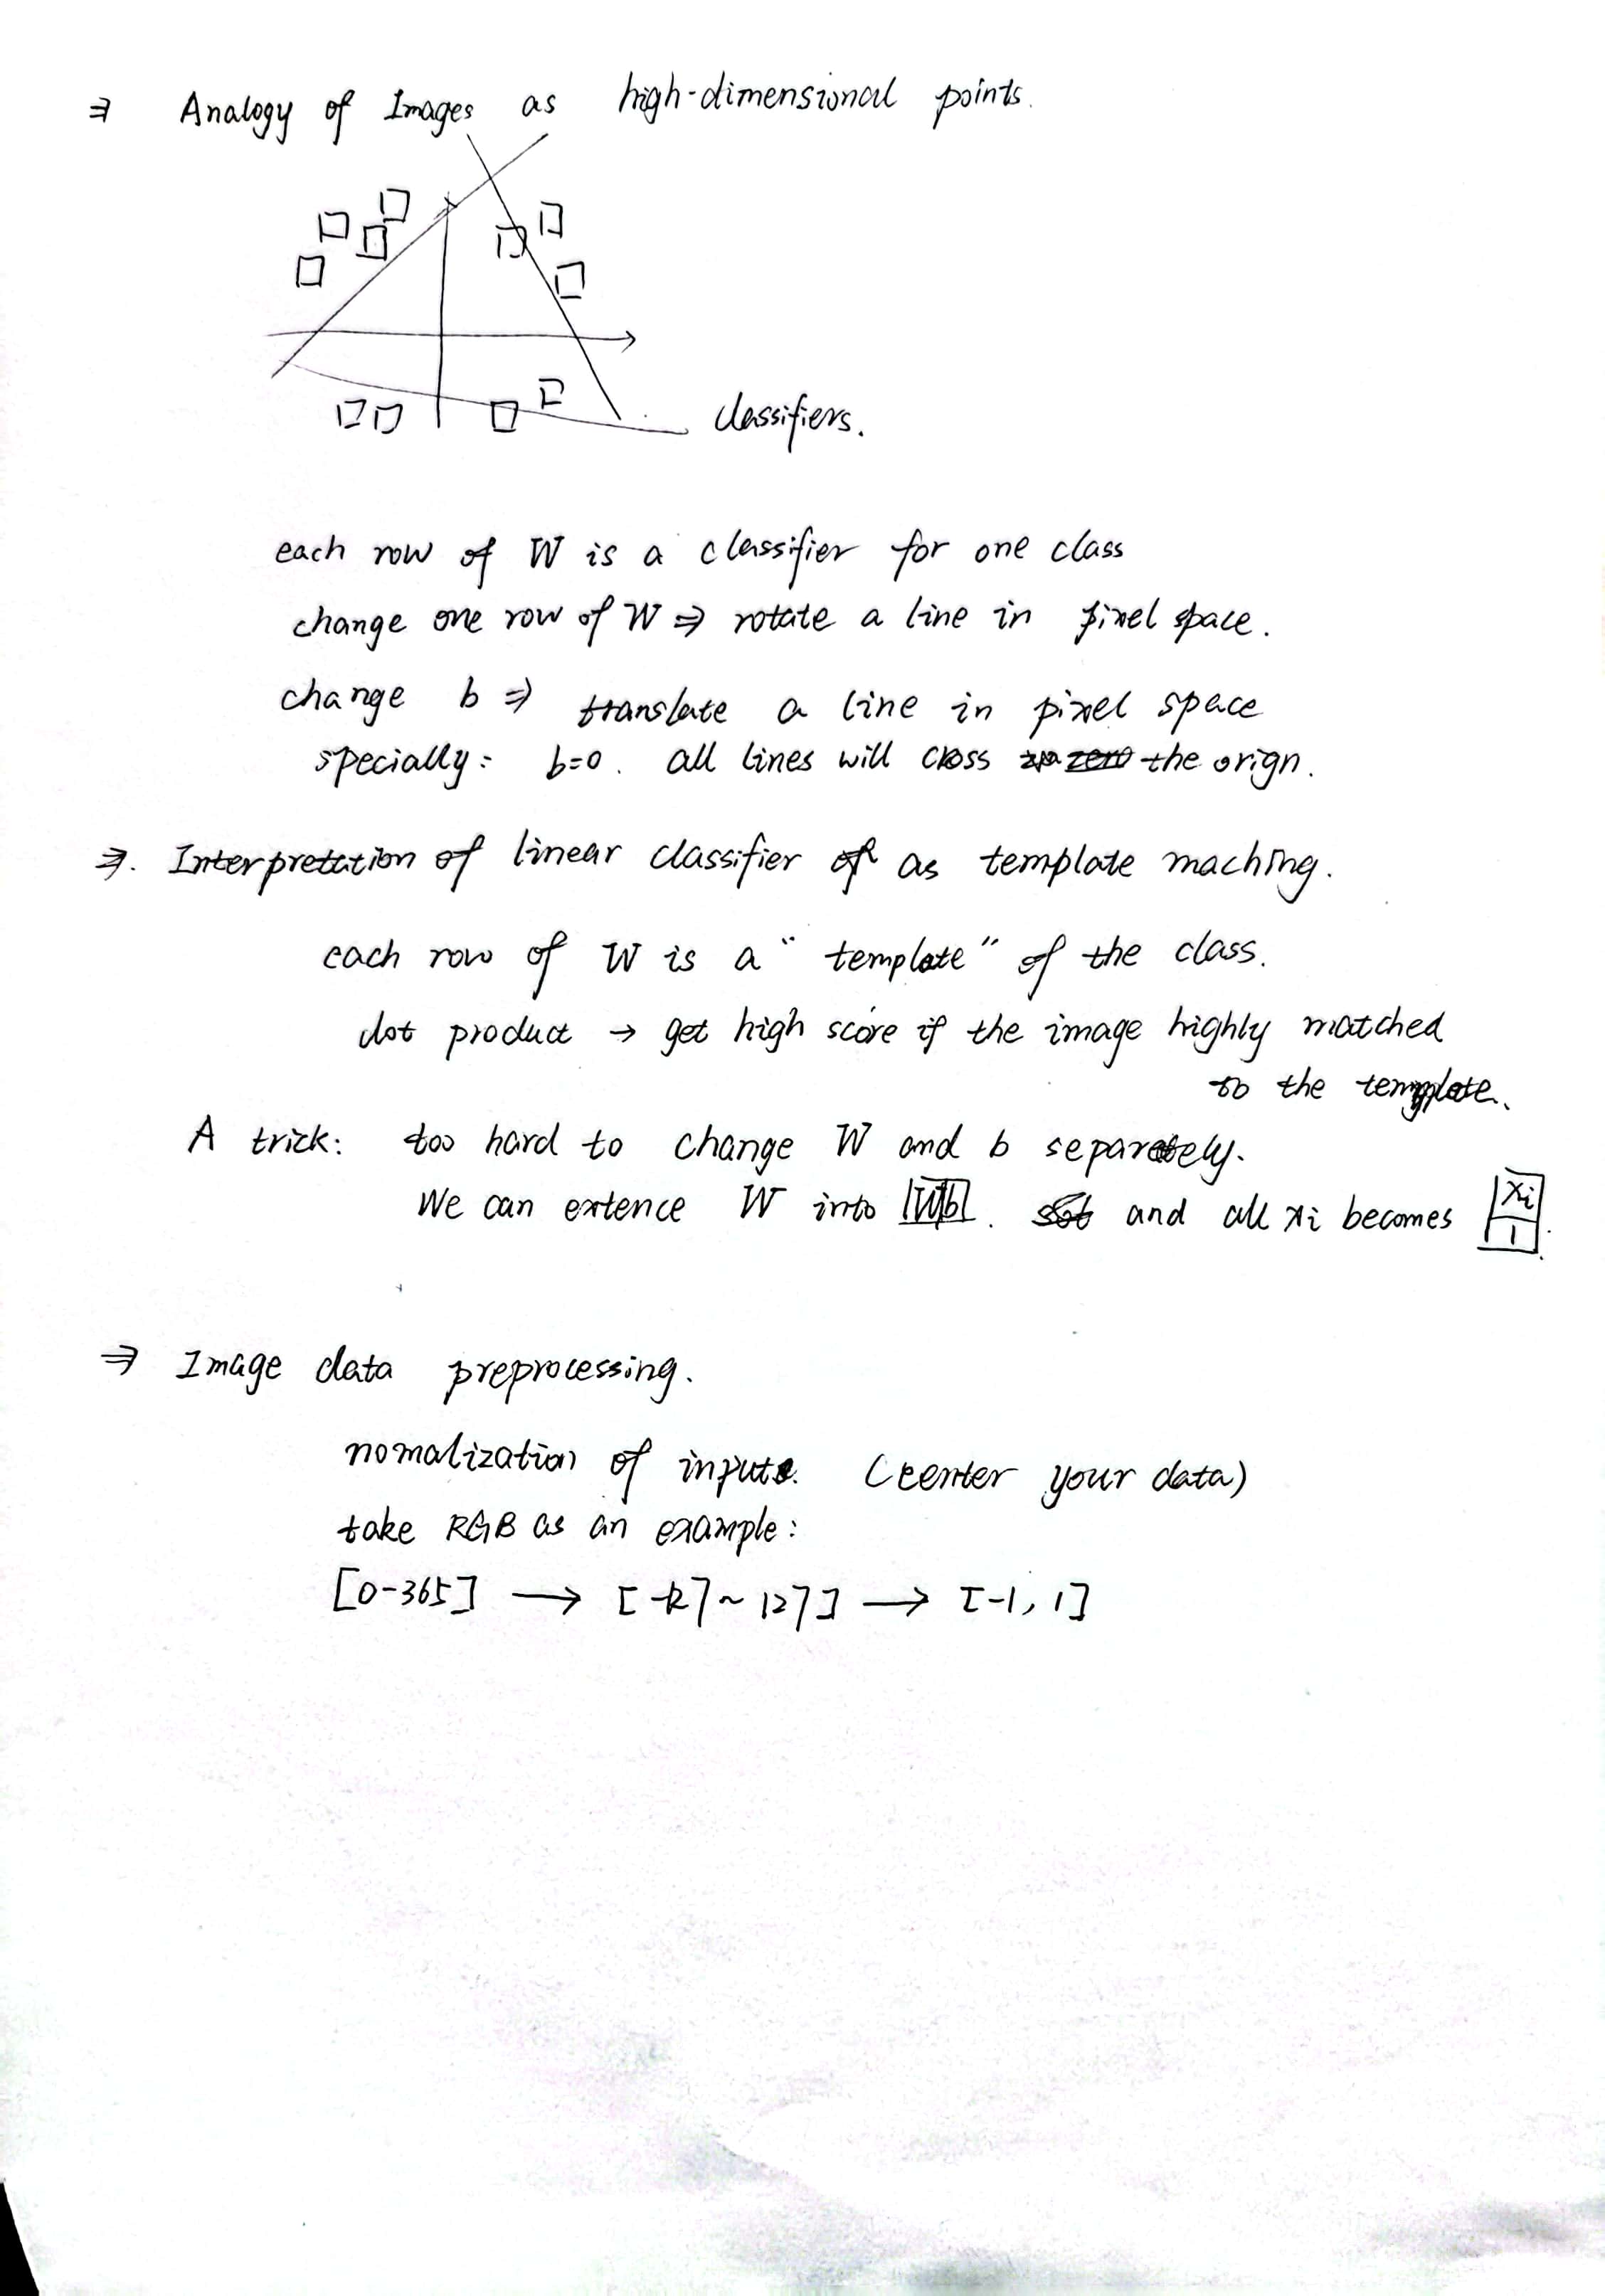 ⇒ Analogy of Images as high-dimensional points.
classifiers.
each row of W is a classifier for one class
change one row of W ⇒ rotate a line in pixel space.
change b ⇒ translate a line in pixel space
specially: b=0. all lines will cross the orign.
⇒. Interpretation of linear classifier as template maching.
each row of W is a "template" of the class.
dot product → get high score if the image highly matched
to the template.
A trick: too hard to change W and b separetely.
We can extence W into |W|b|. and all xi becomes
xi
1
⇒ Image data preprocessing.
nomalization of inputs. (center your data)
take RGB as an example:
[0-365] → [-127~127] → [-1, 1]